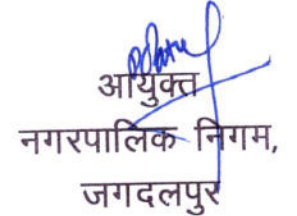 आयुक्त
नगरपालिक निगम,
जगदलपुर